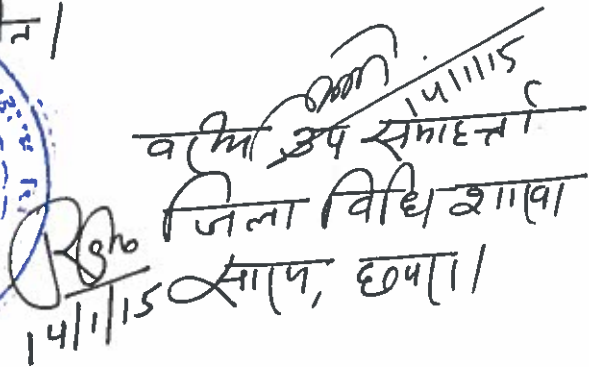 त।
14/1/15
वरीय उप समाहर्त्ता
जिला विधि शाखा
सारण, छपरा।
14/1/15